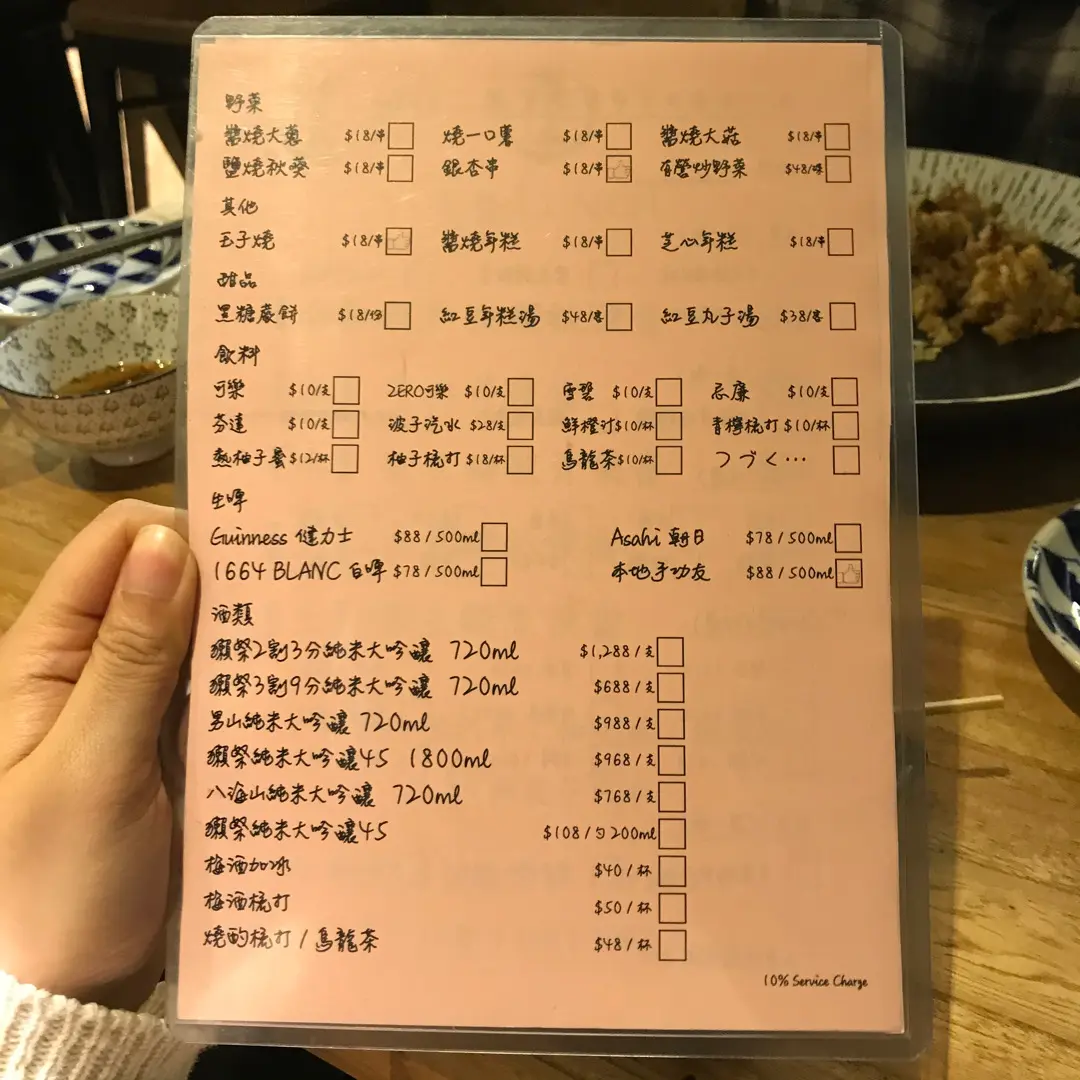 野菜
醬燒大蔥 $18/串 燒一口薯 $18/串 醬燒大菇 $18/串
鹽燒秋葵 $18/串 銀杏串 $18/串 有營炒野菜 $48/碟
其他
玉子燒 $18/串 醬燒年糕 $18/串 芝心年糕 $18/串
甜品
黑糖蕨餅 $18/份 紅豆年糕湯 $48/客 紅豆丸子湯 $38/客
飲料
可樂 $10/支 ZERO可樂 $10/支 雪碧 $10/支 忌廉 $10/支
芬達 $10/支 波子汽水 $28/支 鮮橙汁 $10/杯 青檸梳打 $10/杯
熱柚子蜜 $12/杯 柚子梳打 $18/杯 烏龍茶 $10/杯 つづく…
生啤
Guinness 健力士 $88/500ml Asahi 朝日 $78/500ml
1664 BLANC 白啤 $78/500ml 本地手功友 $88/500ml
酒類
獺祭2割3分純米大吟釀 720ml $1,288/支
獺祭3割9分純米大吟釀 720ml $688/支
男山純米大吟釀 720ml $988/支
獺祭純米大吟釀45 1800ml $968/支
八海山純米大吟釀 720ml $768/支
獺祭純米大吟釀45 $108/ 200ml
梅酒加冰 $40/杯
梅酒梳打 $50/杯
燒酌梳打/烏龍茶 $48/杯
10% Service Charge